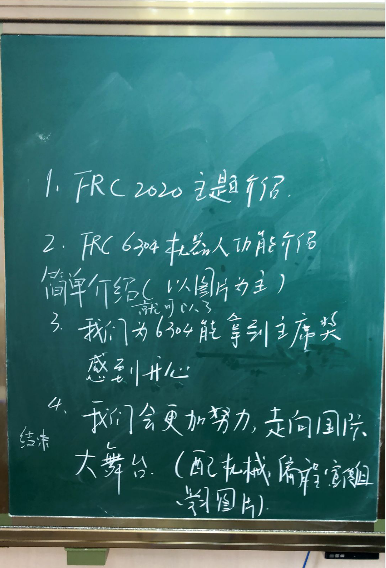 1. FRC 2020 主题介绍.
2. FRC 6304 机器人功能介绍
简单介绍(以图片为主)
就可以了
3. 我们为6304能拿到主席奖
感到开心
4. 我们会更加努力,走向国际
结束
大舞台. (配机械,编程,宣传组
图片).